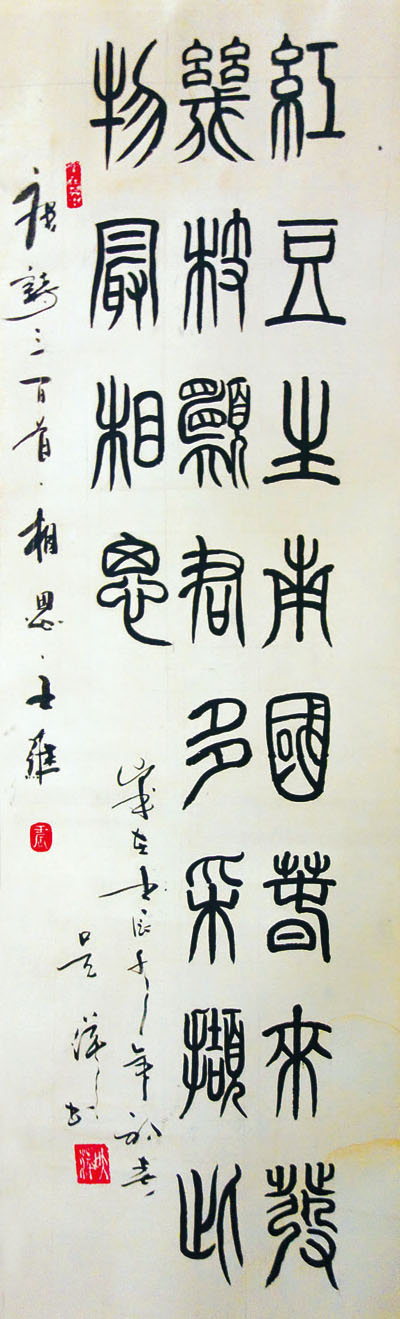 紅豆生南國春來發
幾枝願君多采擷此
物最相思
歲在壬辰年
唐詩三百首·相思·王維